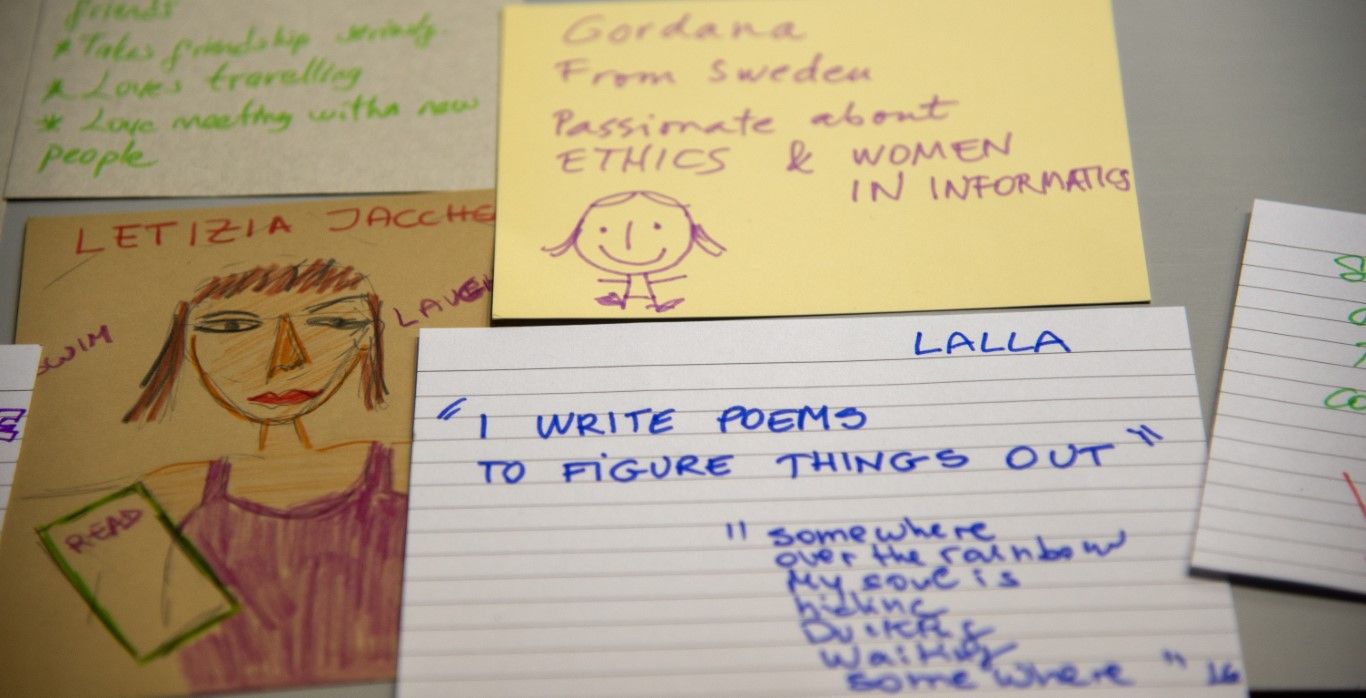 friends
* Takes friendship seriously.
* Loves travelling
* Love meeting with new
people
Gordana
From Sweden
Passionate about
ETHICS & WOMEN
IN INFORMATICS
LETIZIA JACCHE
SWIM
READ
LALLA
"I WRITE POEMS
TO FIGURE THINGS OUT"
"somewhere
over the rainbow
My soul is
hiding
waiting
somewhere" 16